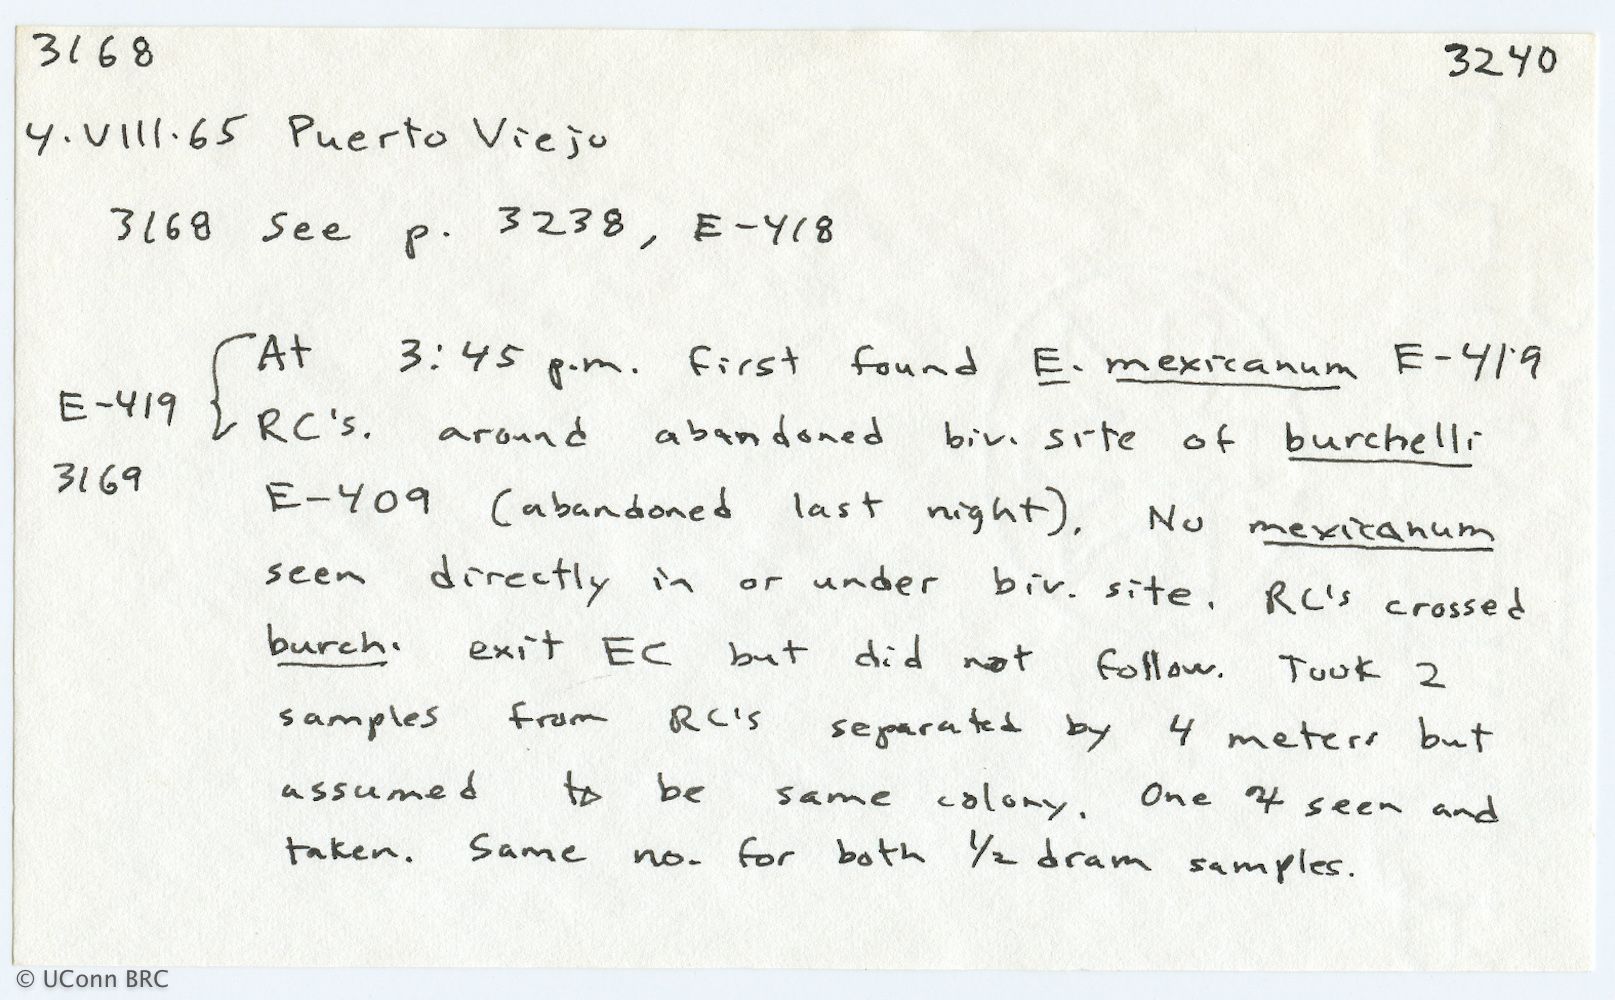 3168 3240
4.VIII.65 Puerto Viejo
3168 See p. 3238, E-418
At 3:45 p.m. first found E. mexicanum E-419
E-419 { RC's. around abandoned biv. site of burchelli
3169 E-409 (abandoned last night). No mexicanum
seen directly in or under biv. site. RC's crossed
burch. exit EC but did not follow. Took 2
samples from RC's separated by 4 meters but
assumed to be same colony. One ♃ seen and
taken. Same no. for both 1/2 dram samples.
© UConn BRC